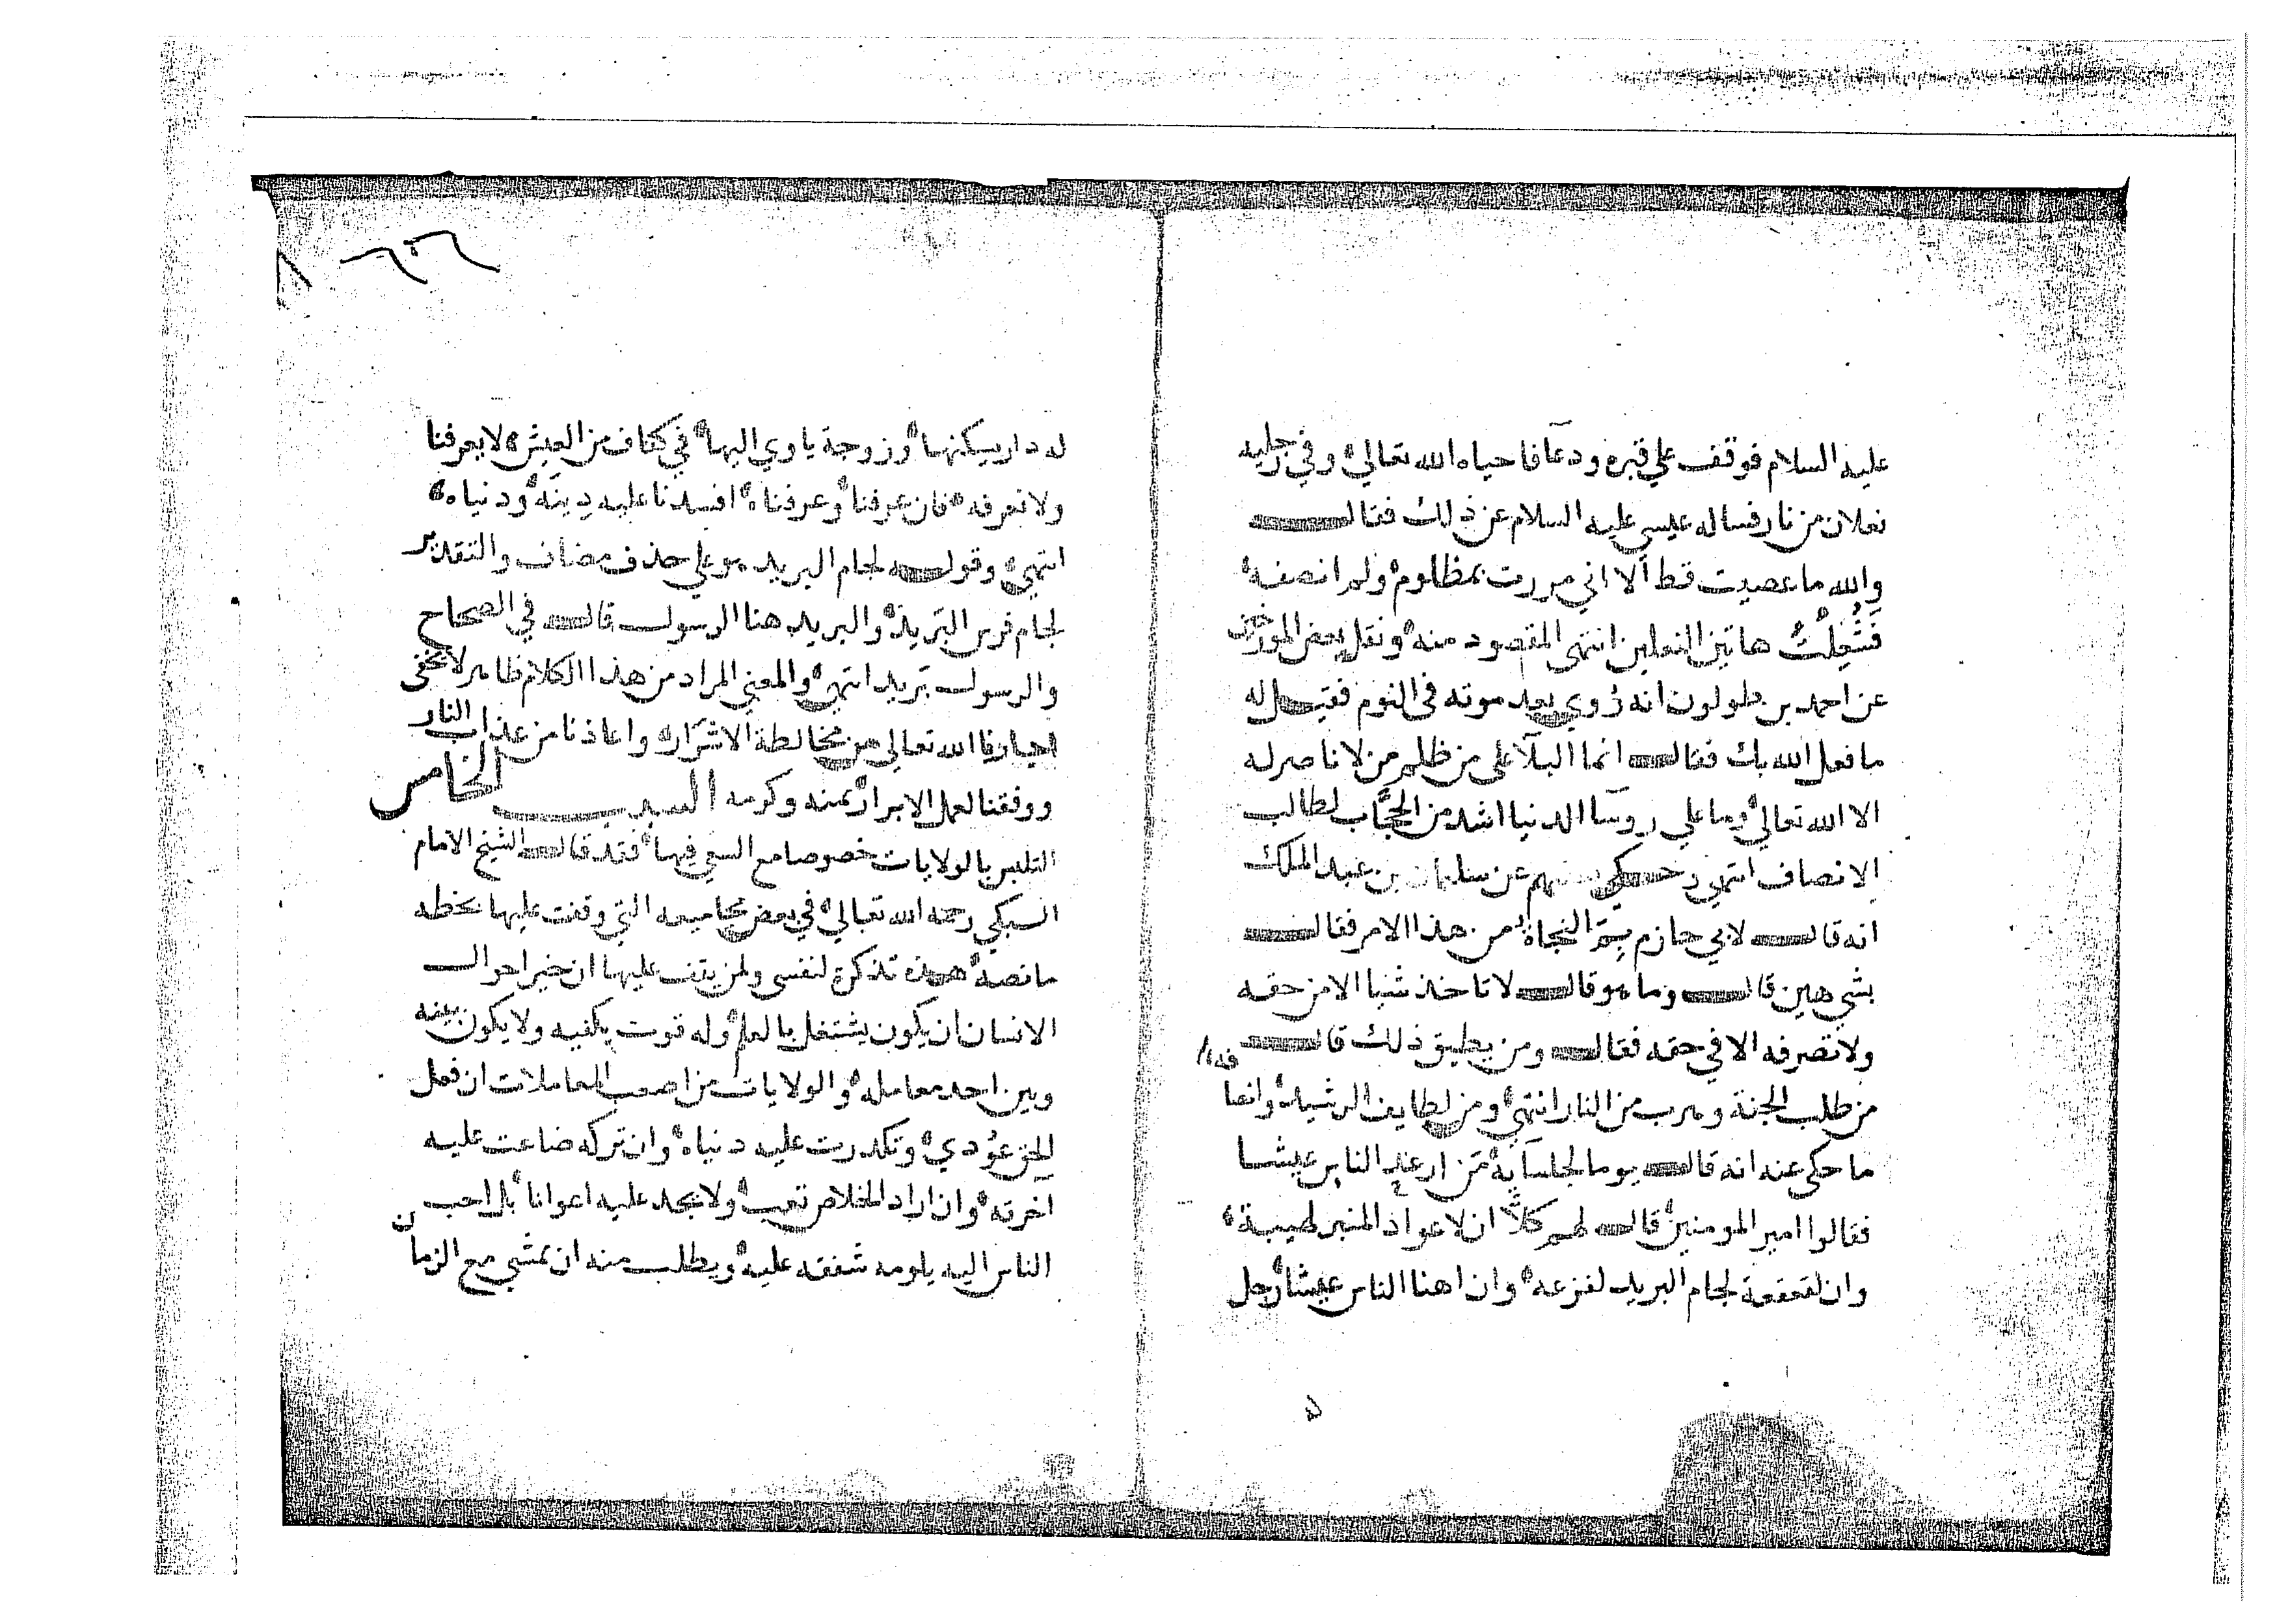 عليه السلام فوقف على قبره ودعا فاحياه الله تعالى وفي رجليه
نعلان من نار فساله عيسى عليه السلام عن ذلك فقال
والله ما عصيت قط الا اني مررت بمظلوم ولم انصفه
هاتين النعلين انتهى المقصود منه ونقل بعض المورخين
عن احمد بن طولون انه رؤي بعد موته في النوم فقيل له
ما فعل الله بك فقال انما البلآ على من ظلم من لا ناصر له
الا الله تعالى وما على روسآ الدنيا اشد من الحجاب لطالب
الانصاف انتهى وحكى بعضهم عن سليمان بن عبد الملك
انه قال لابي حازم بم النجاة من هذا الامر فقال
بشي هين قال وما هو قال لا تاخذ شيا الا من حقه
ولا تصرفه الا في حقه فقال ومن يطيق ذلك قال
من طلب الجنة وهرب من النار انتهى ومن لطايف الرشيد
ما حكى عنه انه قال يوما لجلسآيه من ارغد الناس عيشا
فقالوا امير المومنين قال لهم كلا ان لاعواد المنبر لهيبة
وان لقعقعة لجام البريد لفزعه وان اهنا الناس عيشا رجل
له دار يسكنها وزوجة ياوي اليها في كفاف من العيش لا يعرفنا
ولا نعرفه فان عرفنا وعرفناه افسدنا عليه دينه ودنياه
انتهى وقوله لجام البريد هو على حذف مضاف والتقدير
لجام فرس البريد والبريد هنا الرسول قال في الصحاح
والرسول بريد انتهى والمعنى المراد من هذا الكلام ظاهر لا يخفى
اجارنا الله تعالى من مخالطة الاشرار واعاذنا من عذاب النار
ووفقنا لعمل الابرار بمنه وكرمه السبب الخامس
التلبس بالولايات خصوصا مع السعي فيها فقد قال الشيخ الامام
السبكي رحمه الله تعالى في بعض مجاميعه التي وقفت عليها بخطه
ما نصه هذه تذكرة لنفسي ولمن يقف عليها ان خير احوال
الانسان ان يكون يشتغل بالعلم وله قوت يكفيه ولا يكون بينه
وبين احد معامله والولايات من اصعب المعاملات ان فعل
الحق عودي وتكدرت عليه دنياه وان تركه ضاعت عليه
آخرته وان اراد الخلاص تعب ولا يجد عليه اعوانا بل احب
الناس اليه يلومه شفقه عليه ويطلب منه ان يمشي مع الزمان